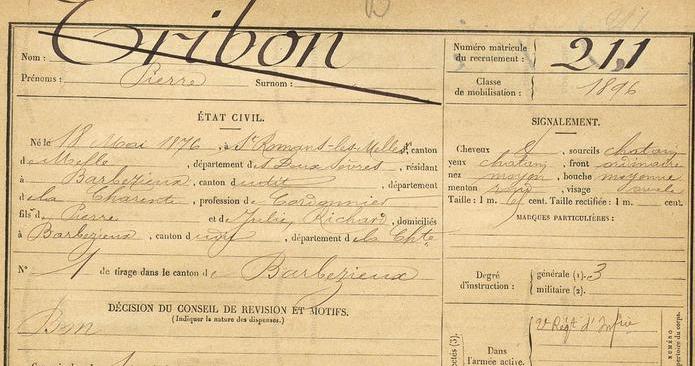 Nom : Tribon
Prénoms : Pierre Surnom :
Numéro matricule du recrutement : 211
Classe de mobilisation : 1896
ÉTAT CIVIL.
Né le 18 Mai 1876, à St Romans-les-Melle, canton
de Melle, département des Deux Sèvres, résidant
à Barbezieux, canton dudit, département
de la Charente, profession de Cordonnier
fils de Pierre et de Julie, Richard, domiciliés
à Barbezieux, canton dudit, département de la Chte
N° 1 de tirage dans le canton de Barbezieux
DÉCISION DU CONSEIL DE REVISION ET MOTIFS.
(Indiquer la nature des dispenses.)
Bon
SIGNALEMENT.
Cheveux sourcils chatain
yeux chatain, front ordinaire
nez moyen, bouche moyenne
menton rond, visage ovale
Taille : 1 m. cent. Taille rectifiée : 1 m. cent.
MARQUES PARTICULIÈRES :
Degré d'instruction : générale (1). 3
militaire (2).
Dans l'armée active.
Régt d'Infie
NUMÉRO